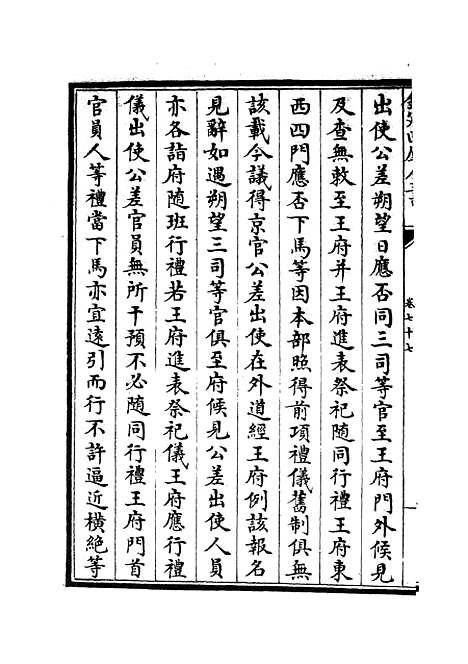 欽定四庫全書
卷七十七
出使公差朔望日應否同三司等官至王府門外候見
及查無敕至王府并王府進表祭祀隨同行禮王府東
西四門應否下馬等因本部照得前項禮儀舊制俱無
該載今議得京官公差出使在外道經王府例該報名
見辭如遇朔望三司等官俱至府候見公差出使人員
亦各詣府隨班行禮若王府進表祭祀儀王府應行禮
儀出使公差官員無所干預不必隨同行禮王府門首
官員人等禮當下馬亦宜遠引而行不許逼近橫絶等